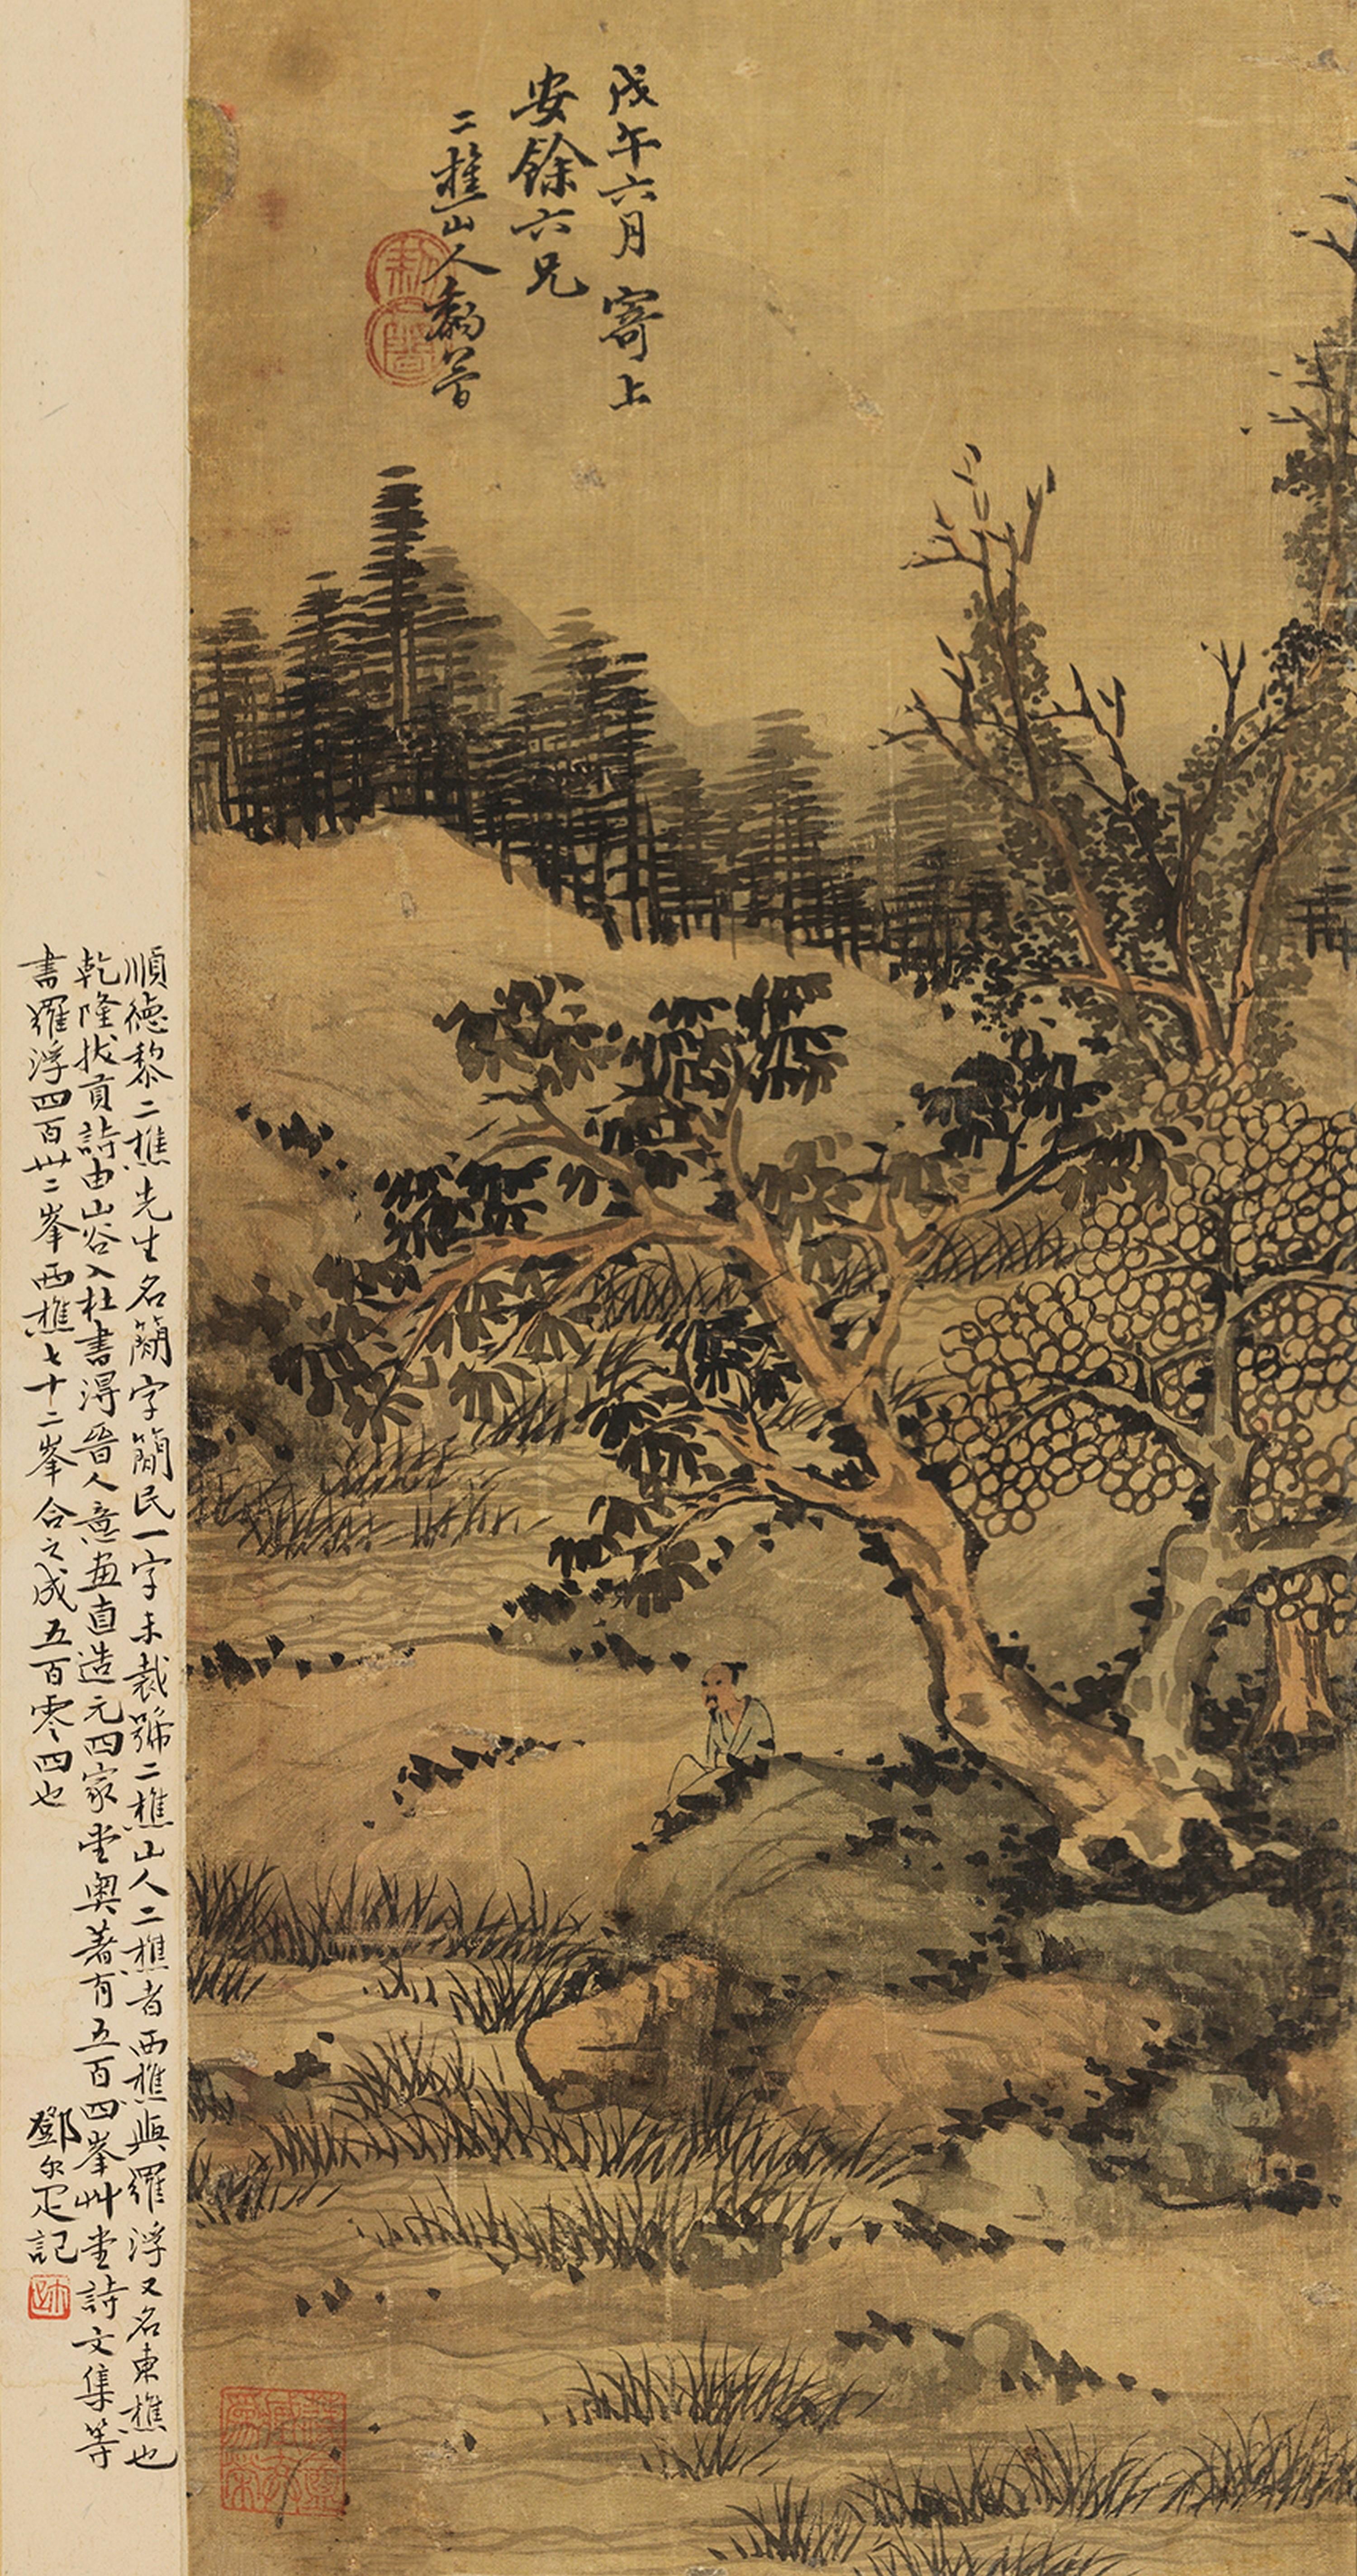 戊午六月寄上
安餘六兄
二樵山人黎簡
順德黎二樵先生名簡字簡民一字未裁號二樵山人二樵者西樵與羅浮又名東樵也
乾隆拔貢詩由山谷入杜書得晉人意画直造元四家堂奧著有五百四峯艸堂詩文集等
書羅浮四百卅二峯西樵七十二峯合之成五百零四也
鄧尔疋記